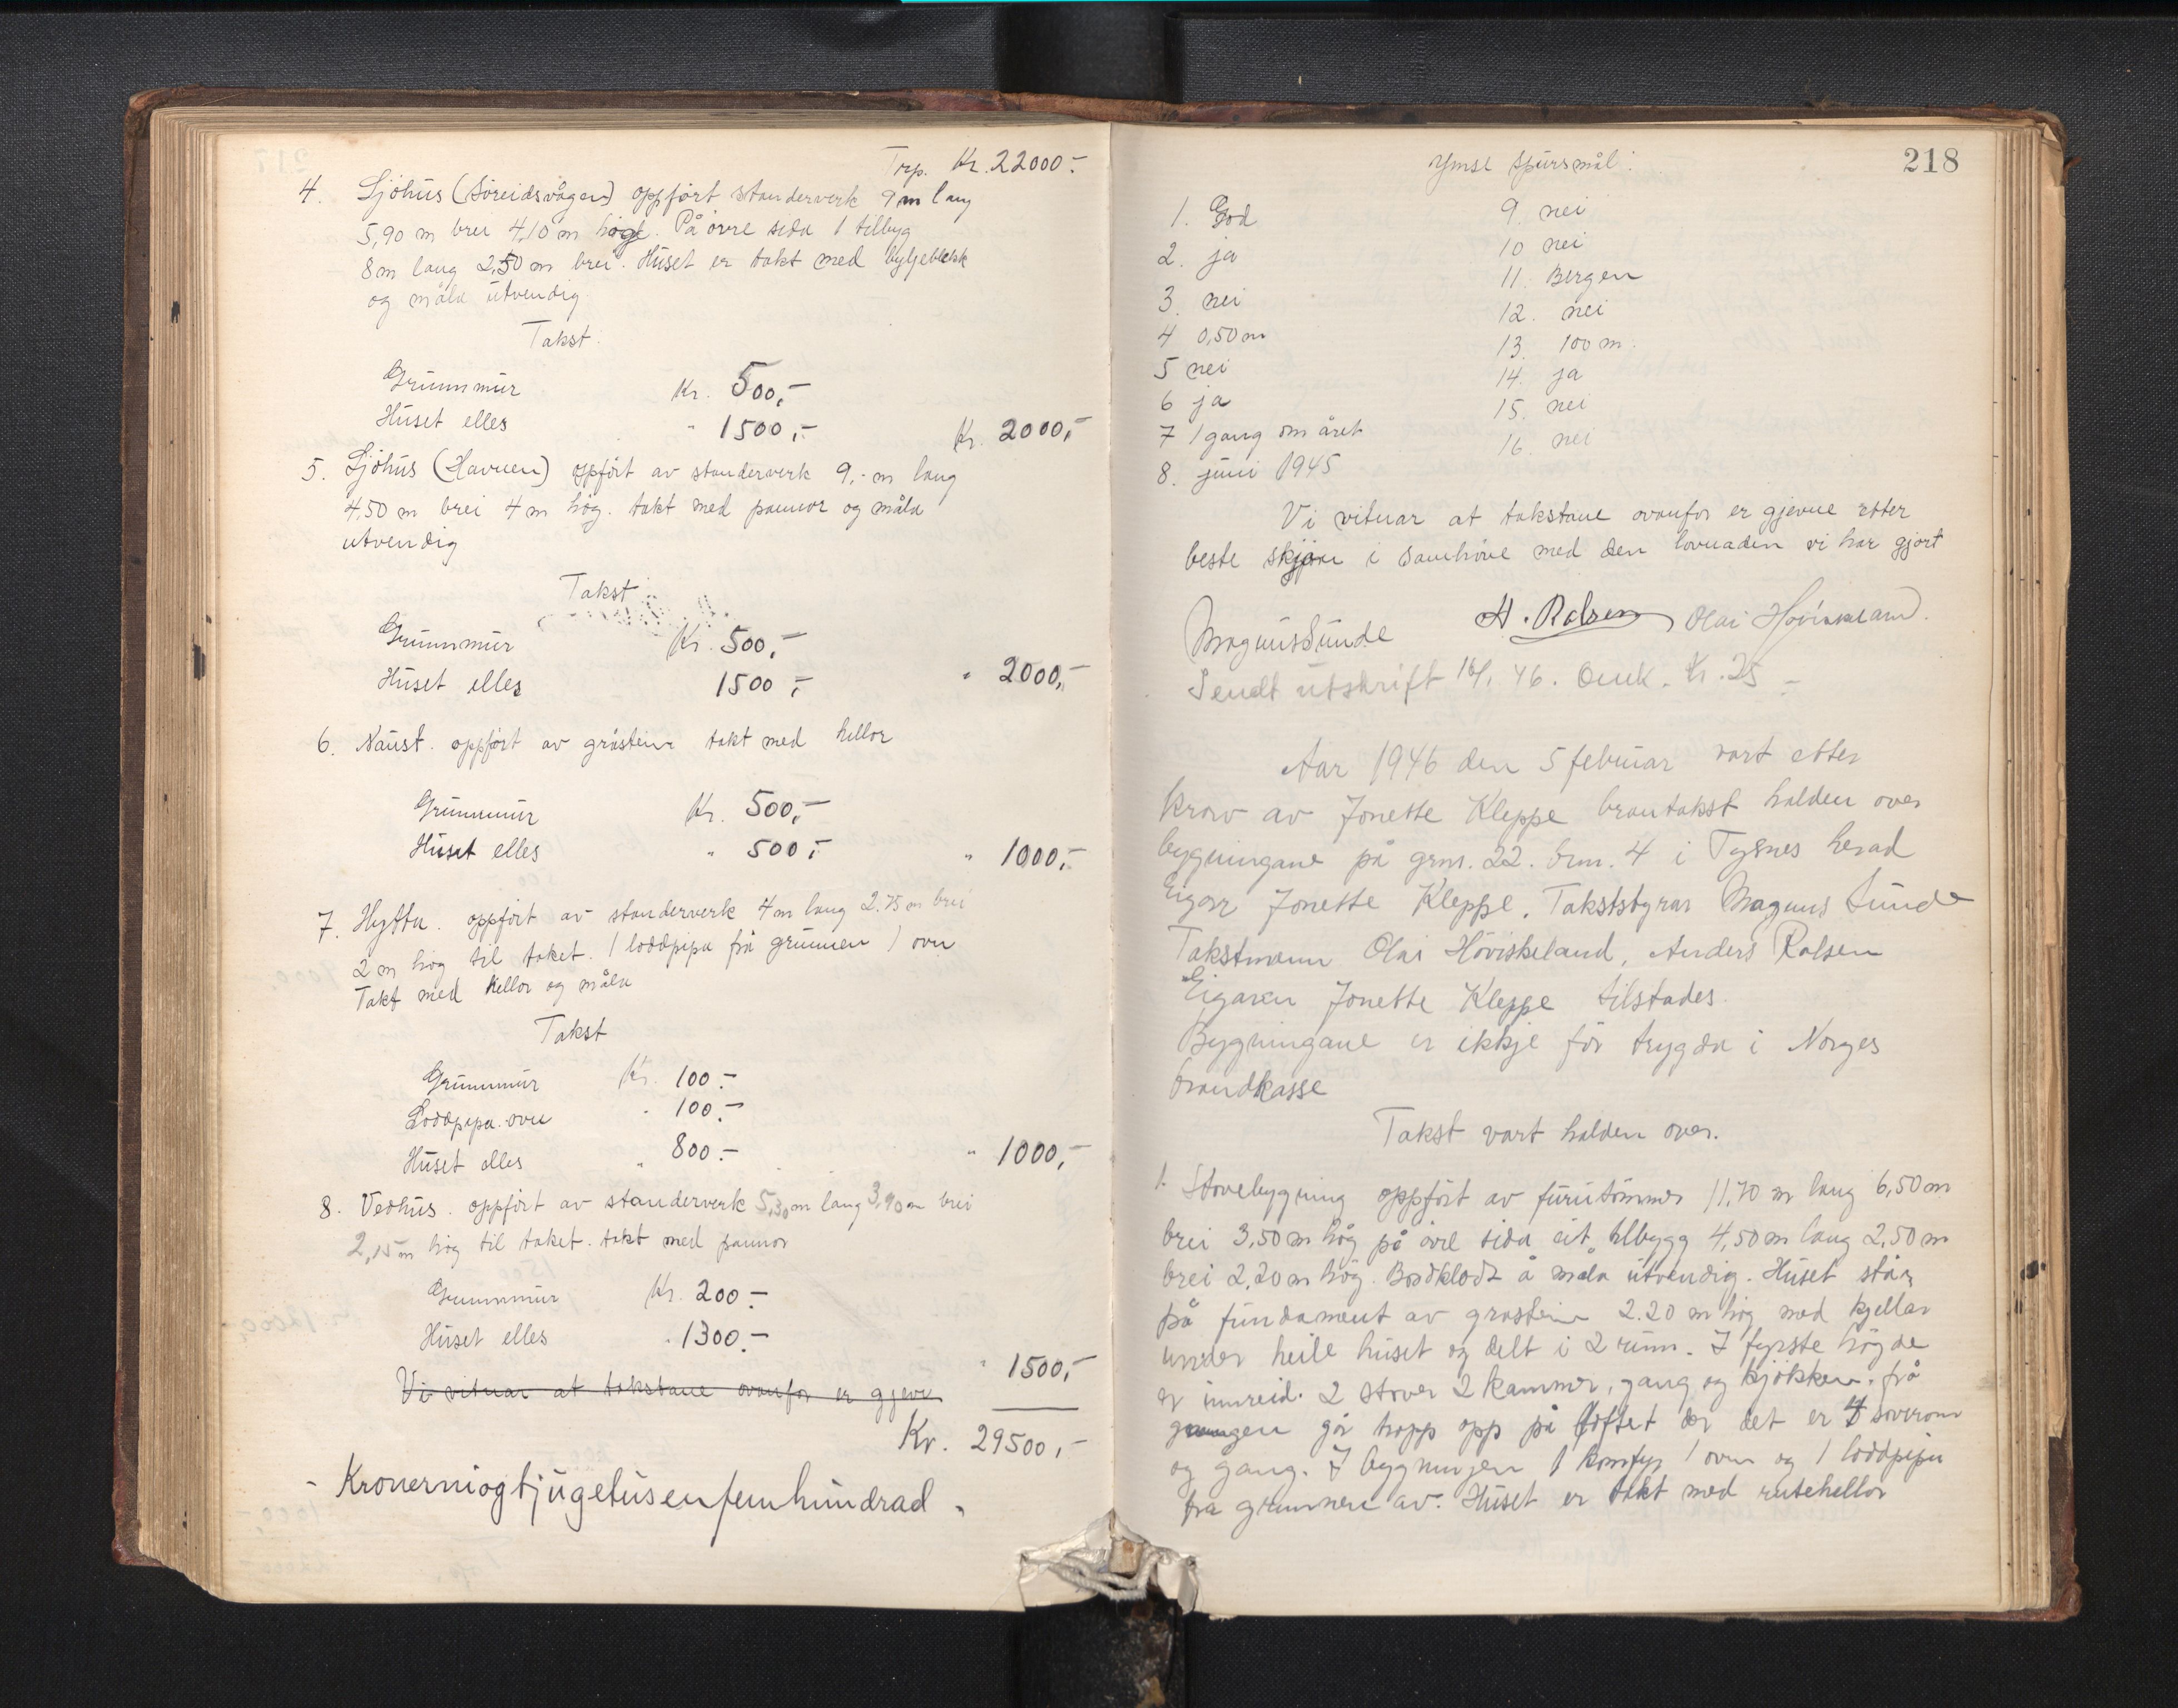 Trp. Kr. 22000.-
4. Sjöhus (Söreidsvågen) oppfört standerverk 9 m lang
5,90 m brei 4,10 m høge. På övre sida 1 tilbyg
8 m lang 2,50 m brei. Huset er takt med bylgeblekk
og måla utvendig
Takst.
Grunnmur Kr. 500,-
Huset elles " 1500,- Kr. 2000,-
5. Sjöhus (Havnen) oppfört av standerverk 9,- m lang
4,50 m brei 4 m høg. takt med pannor og måla
utvendig
Takst
Grunnmur Kr. 500,-
Huset elles 1500,- " 2000,-
6. Naust. oppfört av gråstein takt med hellor
Grunnmur Kr. 500,-
Huset elles " 500,- " 1000,-
7. Hytta. oppfört av standerverk 4 m lang 2.75 m brei
2 m høg til taket. 1 loddpipa frå grunnen 1 ovn
Takt med hellor og måla
Takst
Grunnmur Kr. 100.-
Loddpipa. ovn " 100.-
Huset elles " 800.- " 1000,-
8. Vedhus. oppfört av standerverk 5,30 m lang 3,90 m brei
2,15 m høg til taket. takt med pannor
Grunnmur Kr. 200.-
Huset elles " 1300.-
" 1500,-
Vi vitnar at takstane ovanfor er gjevn
Kr. 29500,-
- Kronerniogtjugetusenfemhundrad "
218
Ymse spursmål:
1. God
2. ja
3. nei
4 0,50 m
5 nei
6 ja
7 1 gang om året
8. juni 1945
9. nei
10 nei
11. Bergen
12. nei
13. 100 m.
14. ja
15. nei
16. nei
Vi vitnar at takstane ovanfor er gjevne etter
beste skjøn i samhöve med den lovnaden vi har gjort
Magnus Sunde H. Rolsen Olai Höviskeland.
Sendt utskrift 16/1 46. Omk. kr. 25 -
Aar 1946 den 5 februar vart etter
krav av Jonette Kleppe brantakst halden over
bygningane på grn. 22. brn. 4 i Tysnes herad
Eigar Jonette Kleppe. Takststyrar Magnus Sunde
Takstmenn Olai Höviskeland, Anders Rolsen
Eigaren Jonette Kleppe tilstades.
Bygningane er ikkje för trygda i Norges
brandkasse
Takst vart halden over.
1. Stovebygning oppfört av furutömmer 11,70 m lang 6,50 m
brei 3,50 m høg på övre sida eit tilbygg 4,50 m lang 2,50 m
brei 2,20 m høg. Bordklædt å måla utvendig. Huset står
på fundament av gråstein 2.20 m høg med kjellar
under heile huset og delt i 2 rum. I fyrste høgde
er innreid. 2 stover 2 kammer, gang og kjökken. frå
gangen går trapp opp på loftet der det er 4 soverom
og gang. I bygningen 1 komfyr 1 ovn og 1 loddpipa
fra grunnen av. Huset er takt med rutehellor